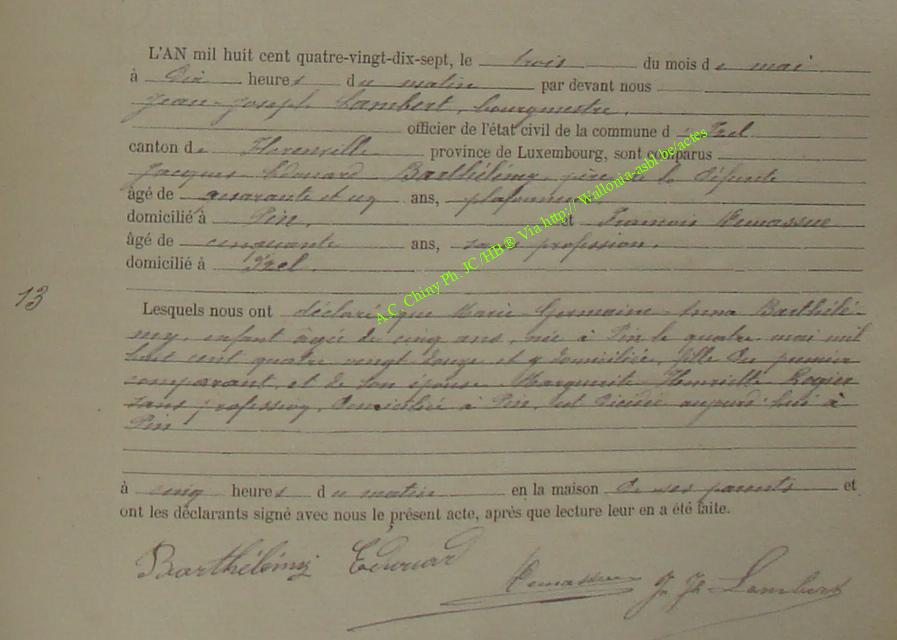 L'AN mil huit cent quatre-vingt-dix-sept, le trois du mois de mai
à dix heures du matin par devant nous
Jean-Joseph Lambert, bourgmestre,
officier de l'état civil de la commune d'Izel
canton de Florenville province de Luxembourg, sont comparus
Jacques Edouard Barthélémy, père de la défunte
âgé de quarante et un ans, plafonneur
domicilié à Pin, et François Remassue
âgé de cinquante ans, sans profession,
domicilié à Izel.
13
Lesquels nous ont déclaré que Marie-Germaine-Anna Barthélé-
my, enfant âgée de cinq ans, née à Pin le quatre mai mil
huit cent quatre vingt douze et y domiciliée, fille du premier
comparant, et de son épouse Marguerite Henriette Rogier
sans profession, domiciliée à Pin, est décédée aujourd'hui à
Pin
à cinq heures du matin en la maison de ses parents et
ont les déclarants signé avec nous le présent acte, après que lecture leur en a été faite.
Barthélémy Edouard
Remassue J. Jh Lambert
A.C. Chiny Ph. JC/HB® Via http://Wallonia-asbl.be/actes